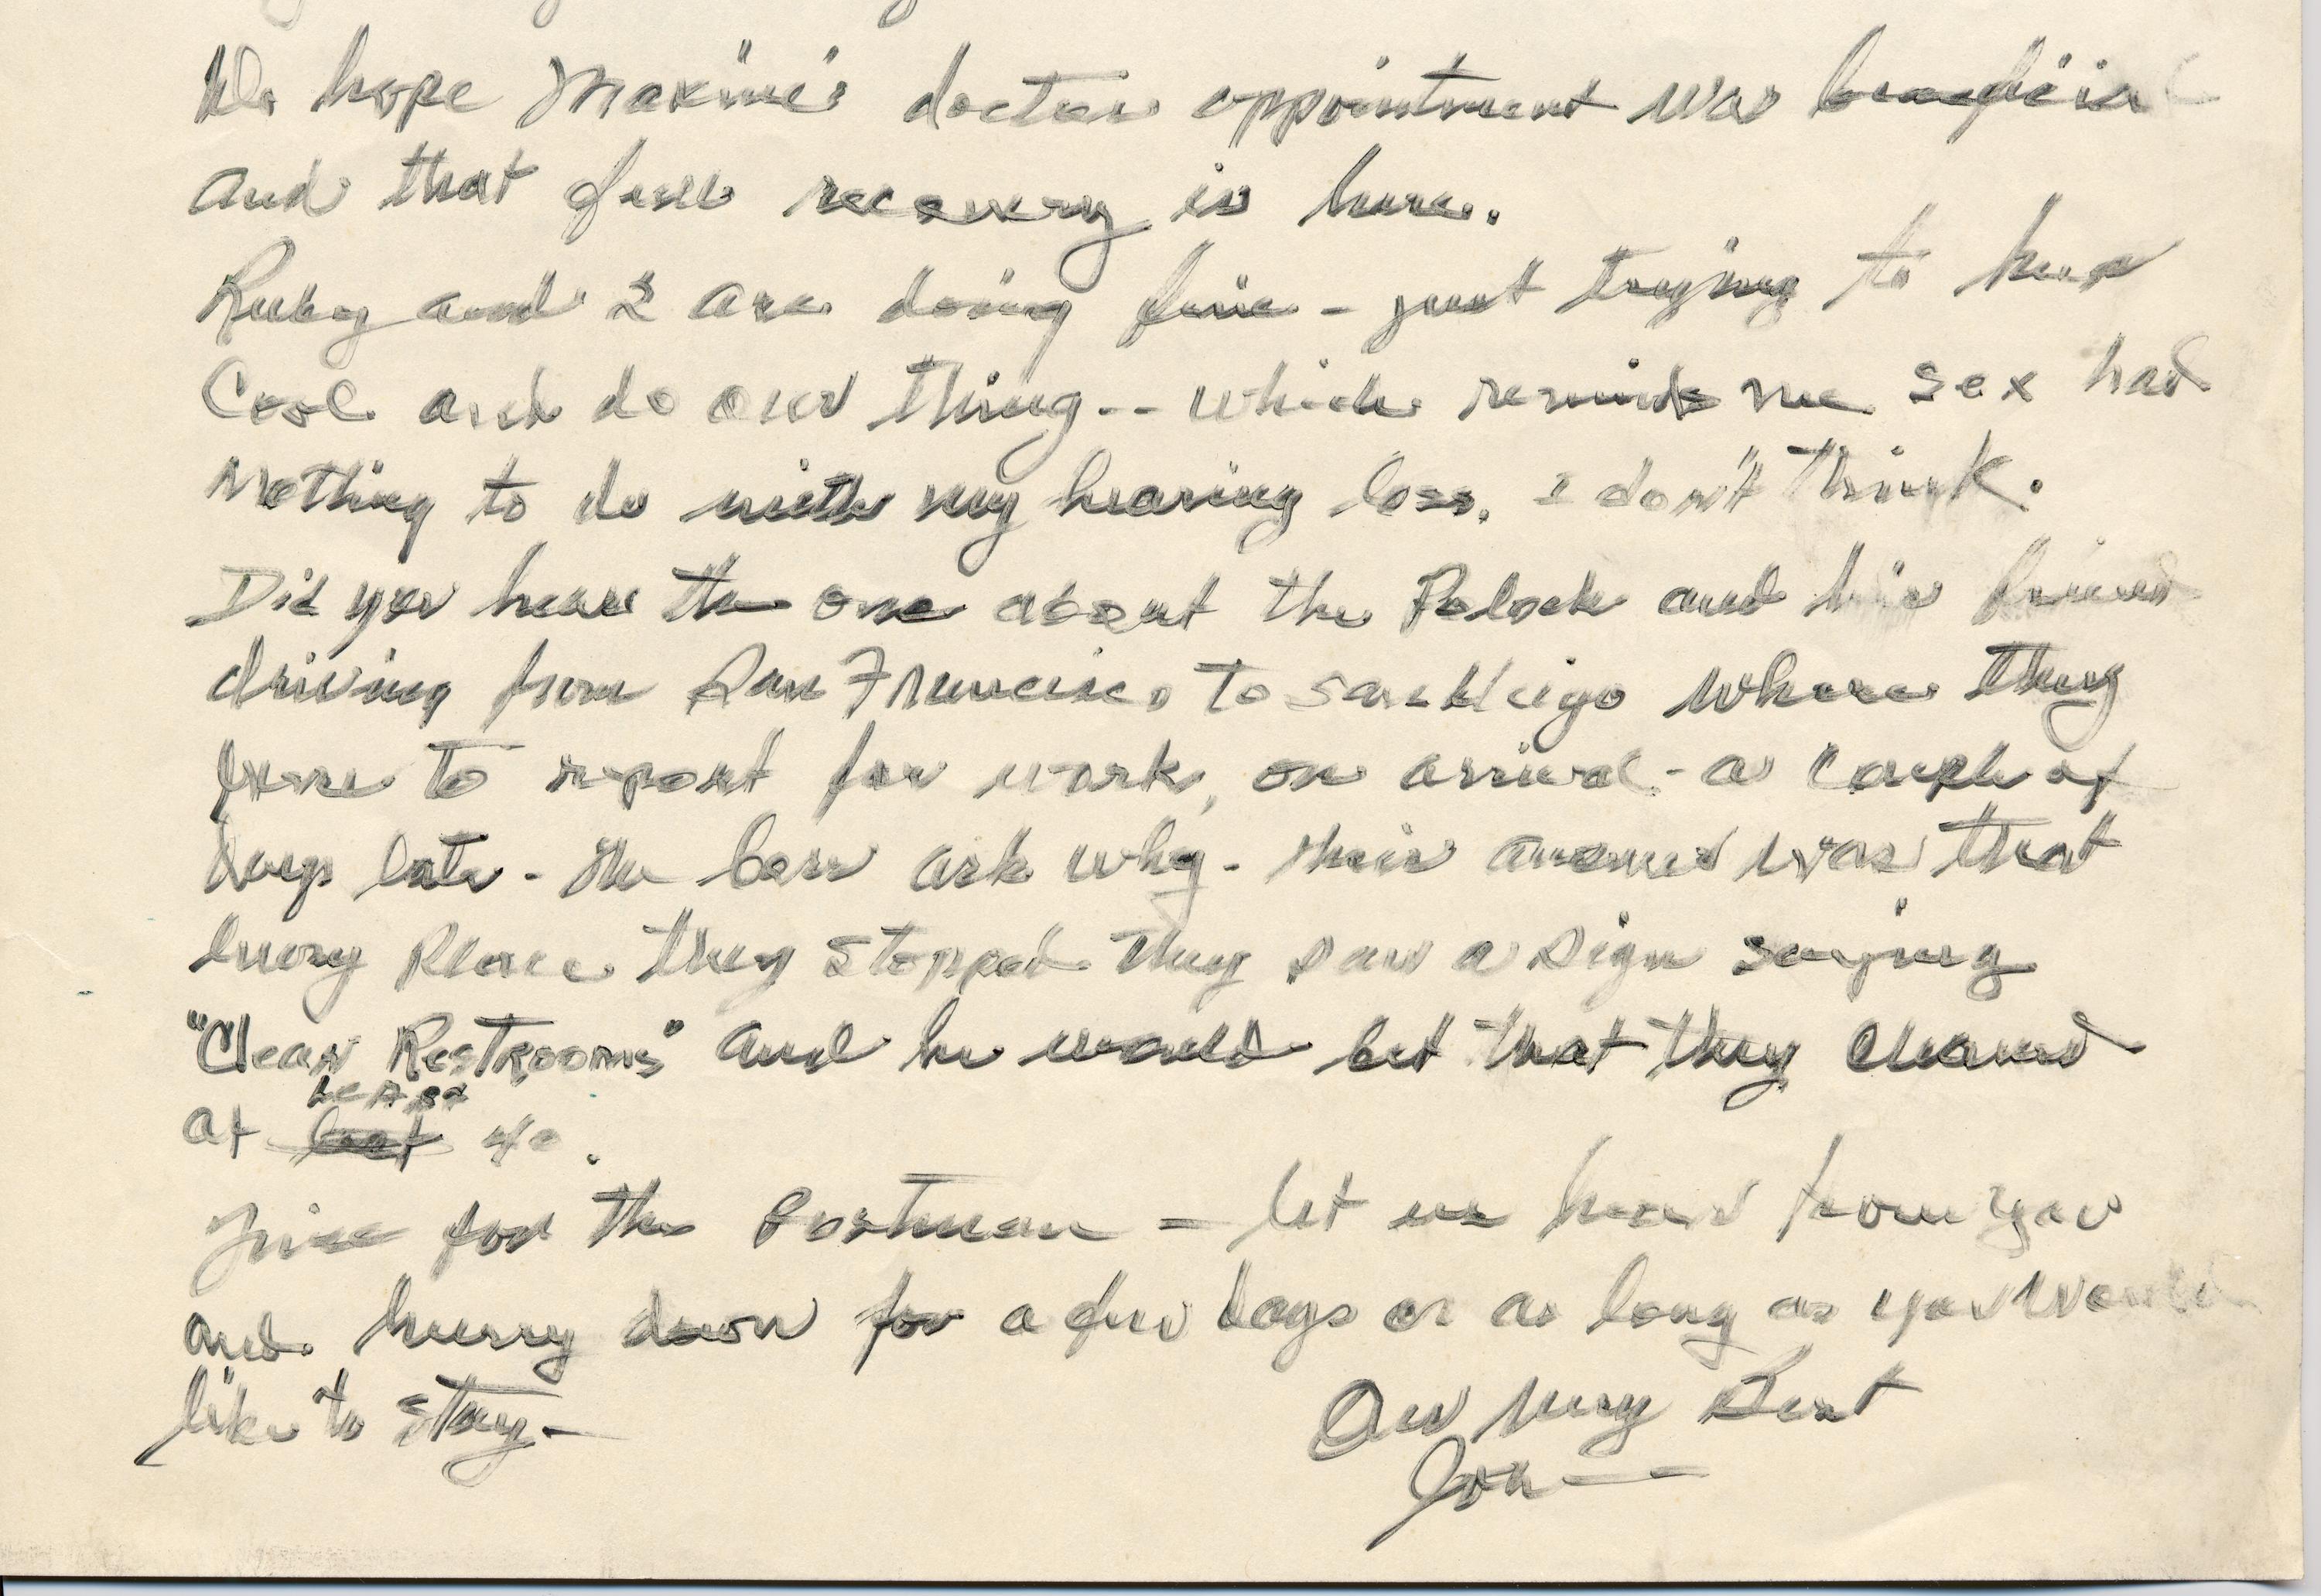 We hope Maxine's doctors appointment was beneficial
and that full recovery is here.
Ruby and I are doing fine - just trying to keep
Cool and do our thing -- which reminds me sex had
nothing to do with my hearing loss. I don't think.
Did you hear the one about the Polock and his friend
driving from San Francisco to San Diego where they
were to report for work, on arrival - a couple of
days late - The boss ask why - their answer was that
every place they stopped they saw a sign saying
"Clean Restrooms" and he would bet that they cleaned
at least 40.
Time for the Postman - let us hear from you
and hurry down for a few days or as long as you would
like to stay -
Our Very Best
Jon